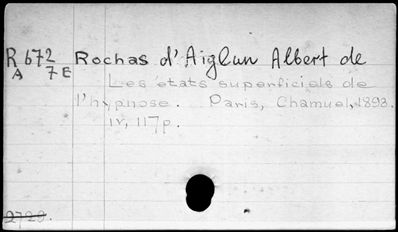 R 672 Rochas d'Aiglun Albert de
A 7E
Les états superficiels de
l'hypnose. Paris, Chamuel, 1893.
IV, 117p.
2729.